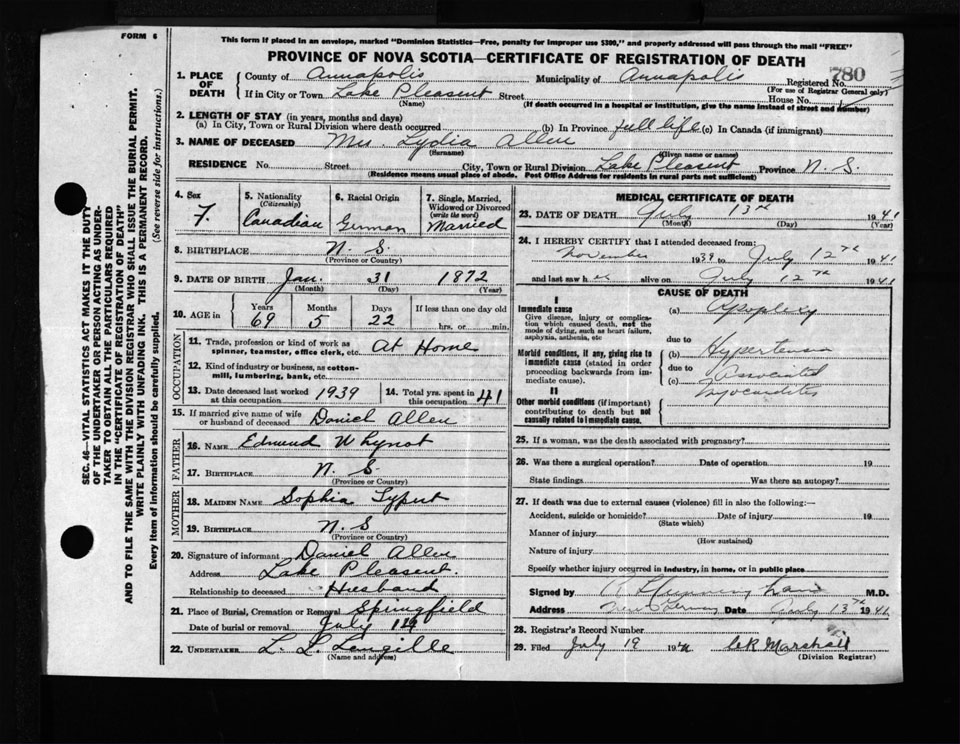 FORM 6
This form if placed in an envelope, marked "Dominion Statistics—Free, penalty for improper use $300," and properly addressed will pass through the mail "FREE"
PROVINCE OF NOVA SCOTIA—CERTIFICATE OF REGISTRATION OF DEATH
780
1. PLACE OF DEATH { County of Annapolis Municipality of Annapolis Registered No.
(For use of Registrar General only)
If in City or Town Lake Pleasent Street House No.
(Name) (If death occurred in a hospital or institution, give the name instead of street and number)
2. LENGTH OF STAY (in years, months and days)
(a) In City, Town or Rural Division where death occurred (b) In Province full life (c) In Canada (if immigrant)
3. NAME OF DECEASED Mrs. Lydia Allen
(Surname) (Given name or names)
RESIDENCE No. Street City, Town or Rural Division Lake Pleasent Province N. S.
(Residence means usual place of abode. Post Office Address for residents in rural parts not sufficient)
4. Sex 5. Nationality (Citizenship) 6. Racial Origin 7. Single, Married, Widowed or Divorced (write the word)
F. Canadian German Married
8. BIRTHPLACE N. S.
(Province or Country)
9. DATE OF BIRTH Jan. 31 1872
(Month) (Day) (Year)
10. AGE in Years Months Days If less than one day old
69 5 22 hrs. or min.
OCCUPATION
11. Trade, profession or kind of work as spinner, teamster, office clerk, etc. At Home
12. Kind of industry or business, as cotton-mill, lumbering, bank, etc.
13. Date deceased last worked at this occupation 1939 14. Total yrs. spent in this occupation 41
15. If married give name of wife or husband of deceased Daniel Allen
FATHER
16. NAME Edmund Whynot
17. BIRTHPLACE N. S.
(Province or Country)
MOTHER
18. MAIDEN NAME Sophia
19. BIRTHPLACE N. S
(Province or Country)
20. Signature of informant Daniel Allen
Address Lake Pleasent.
Relationship to deceased Husband
21. Place of Burial, Cremation or Removal Springfield
Date of burial or removal July
22. UNDERTAKER L. L. Langille
(Name and address)
MEDICAL CERTIFICATE OF DEATH
23. DATE OF DEATH July 13th 1941
(Month) (Day) (Year)
24. I HEREBY CERTIFY that I attended deceased from:
November 1939 to July 12th 1941
and last saw her alive on July 12th 1941
CAUSE OF DEATH
I
Immediate cause
Give disease, injury or complication which caused death, not the mode of dying, such as heart failure, asphyxia, asthenia, etc
(a) Apoplexy
due to
Morbid conditions, if any, giving rise to immediate cause (stated in order proceeding backwards from immediate cause).
(b) Hypertension
due to
(c) Associated
Myocarditis
II
Other morbid conditions (if important) contributing to death but not causally related to immediate cause.
25. If a woman, was the death associated with pregnancy?
26. Was there a surgical operation? Date of operation 19
State findings Was there an autopsy?
27. If death was due to external causes (violence) fill in also the following:—
Accident, suicide or homicide? Date of injury 19
(State which)
Manner of injury
(How sustained)
Nature of injury
Specify whether injury occurred in industry, in home, or in public place
Signed by M.D.
Address New Germany Date July 13th 1941
28. Registrar's Record Number
29. Filed July 19 1941 Marshall
(Division Registrar)
SEC. 46—VITAL STATISTICS ACT MAKES IT THE DUTY
OF THE UNDERTAKER OR PERSON ACTING AS UNDER-
TAKER TO OBTAIN ALL THE PARTICULARS REQUIRED
IN THE "CERTIFICATE OF REGISTRATION OF DEATH"
AND TO FILE THE SAME WITH THE DIVISION REGISTRAR WHO SHALL ISSUE THE BURIAL PERMIT.
WRITE PLAINLY WITH UNFADING INK. THIS IS A PERMANENT RECORD.
Every item of information should be carefully supplied. (See reverse side for instructions.)